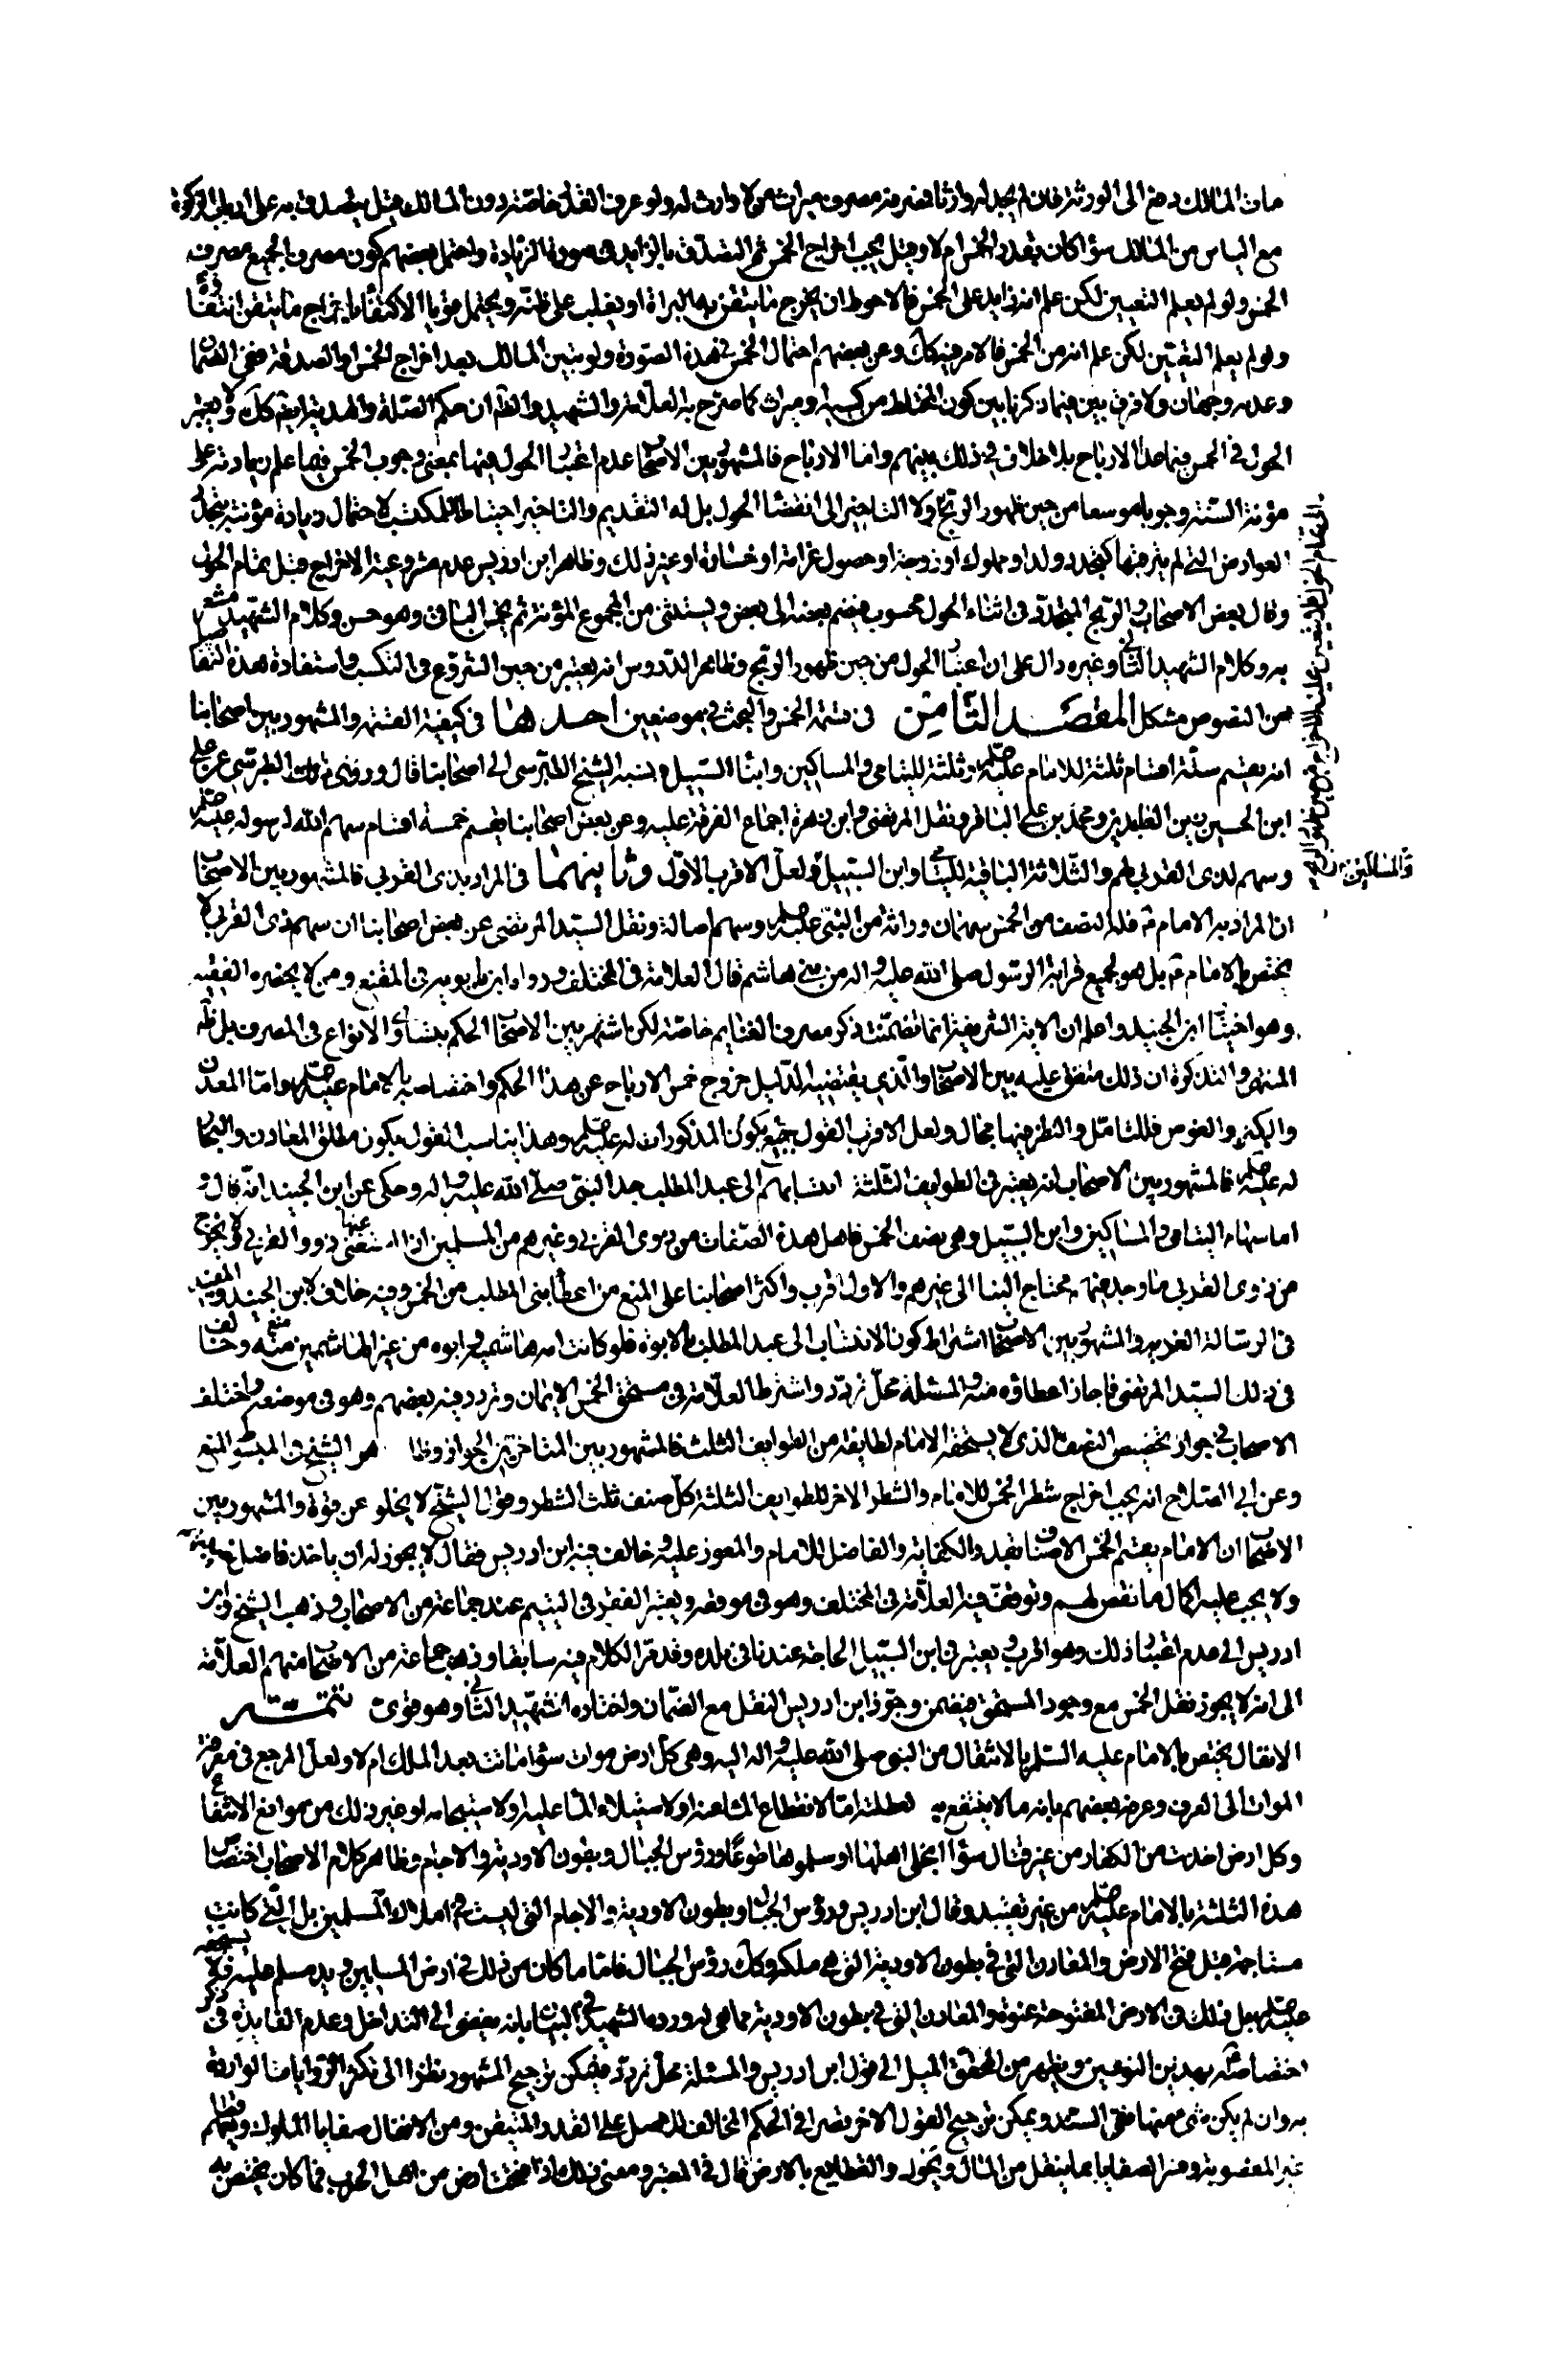 مات المالك دفع الى الورثة فان لم يجد له وارثا فمصرفه مصرف ميراث من لا وارث له ولو عرف القدر خاصة دون المالك قيل يتصدق به على
مع الياس من المالك سواء كان بقدر الخمس ام لا وقيل يجب اخراج الخمس ثم التصدق بالزايد في صورة الزيادة واحتمل بعضهم كون مصرف الجميع مصرف
الخمس ولو لم يعلم التعيين لكن علم انه زايد على الخمس فالاحوط ان يخرج ما يتيقن به البراءة او يغلب على ظنه ويحتمل قويا الاكتفاء باخراج ما يتيقن انتفاءه
ولو لم يعلم التعيين لكن علم انه من الخمس فالامر فيه كك وعن بعضهم احتمال الخمس في هذه الصورة ولو تبين المالك بعد اخراج الخمس او الصدقة ففي الضمان
وعدمه وجهان ولا فرق بين فيما ذكرنا بين كون المختلط من كسبه او ميراث كما صرح به العلامة والشهيد والظم ان حكم الصلة والهدية ايضا كك ولا يعتبر
الحول في الخمس فيما عدا الارباح بلا خلاف في ذلك بينهم واما الارباح فالمشهور بين الاصحاب عدم اعتبار الحول فيها بمعنى وجوب الخمس فيما علم زيادته على
مؤنة السنة وجوبا موسعا من حين ظهور الربح ولا التاخير الى انقضاء الحول بل له التقديم والتاخير احتياطا للمكتسب لاحتمال زيادة مؤنته بتجدد
العوارض التي لم يترقبها كتجدد ولد او مملوك او زوجة او حصول غرامة او خسارة او غير ذلك وظاهر ابن ادريس عدم مشروعية الاخراج قبل تمام الحول
وقال بعض الاصحاب الربح المتجدد في اثناء الحول محسوب فيضم بعضه الى بعض ويستثنى من المجموع المؤنة ثم يخمس الباقي وهو حسن وكلام الشهيد مشعر
به وكلام الشهيد الثاني وغيره دال على ان اعتبار الحول من حين ظهور الربح وظاهر الدروس انه يعتبر من حين الشروع في التكسب واستفادة هذه التفاصيل
من النصوص مشكل المقصد الثامن في قسمة الخمس والبحث في موضعين احدهما في كيفية القسمة والمشهور بين اصحابنا
انه يقسم ستة اقسام ثلثة للامام عليه السلم وثلثة لليتامى والمساكين وابناء السبيل ونسبه الشيخ الطبرسي الى اصحابنا قال وروى ذلك الطبرسي عن علي
ابن الحسين زين العابدين ومحمد بن علي الباقر ونقل المرتضى وابن زهرة اجماع الفرقة عليه وعن بعض اصحابنا يقسم خمسة اقسام سهم الله لرسوله عليه السلم
وسهم لذى القربى لهم والثلاثة الباقية لليتامى وابن السبيل ولعل الاقرب الاول وثانيهما في المراد بذى القربى فالمشهور بين الاصحاب
والمساكين
ان المراد به الامام ع فله النصف من الخمس سهمان وراثة من النبي عليه السلم وسهم اصالة ونقل السيد المرتضى عن بعض اصحابنا ان سهم ذى القربى لا
يختص بالامام ع بل هو لجميع قرابة الرسول صلى الله عليه واله من بني هاشم قال العلامة في المختلف ورواه ابن بابويه في المقنع ومن لا يحضره الفقيه
وهو اختيار ابن الجنيد واعلم ان الاية الشريفة انما تضمنت ذكر مصرف الغنايم خاصة لكن اشتهر بين الاصحاب الحكم بتساوى الانواع في المصرف بل ظ
المنتهى والتذكرة ان ذلك متفق عليه بين الاصحاب والذي يقتضيه الدليل خروج خمس الارباح عن هذا الحكم واختصاصه بالامام عليه السلم واما المعدن
والكنز والغوص فللتامل والنظر فيها مجال ولعل الاقرب القول بكون المذكورات له عليه السلم وهذا يناسب القول بكون مطلق المعادن والبحار
له عليه السلم فالمشهور بين الاصحاب انه يعتبر في الطوايف الثلثة انتسابهم الى عبد المطلب جد النبي صلى الله عليه واله وحكى عن ابن الجنيد انه قال و
اما سهام اليتامى والمساكين وابن السبيل وهي نصف الخمس فاهل هذه الصفات من ذوى القربى وغيرهم من المسلمين اذا استغنى عنها ذووا القربى ولا يخرج
من ذوى القربى ما وجد فيهم محتاج اليها الى غيرهم والاول اقرب واكثر اصحابنا على المنع من اعطاء بني المطلب من الخمس وفيه خلاف لابن الجنيد والمفيد
في الرسالة الغرية والمشهور بين الاصحاب اشتراط كون الانتساب الى عبد المطلب بالابوة فلو كانت امه هاشمية وابوه من غير الهاشميين منع منه وخالف
في ذلك السيد المرتضى فاجاز اعطاؤه منه والمسئلة محل تردد واشترط العلامة في مستحق الخمس الايمان وتردد فيه بعضهم وهو في موضعه واختلف
الاصحاب في جواز تخصيص النصف الذي لا يستحقه الامام لطايفة من الطوايف الثلث فالمشهور بين المتاخرين الجواز وظاهر الشيخ في المبسوط المنع
وعن ابي الصلاح انه يجب اخراج شطر الخمس للامام والشطر الاخر للطوايف الثلثة كل صنف ثلث الشطر وقول الشيخ لا يخلو عن قوة والمشهور بين
الاصحاب ان الامام يقسم الخمس الاصناف بقدر الكفاية والفاضل للامام والمعوز عليه وخالف فيه ابن ادريس فقال لا يجوز له ان ياخذ فاضل نصيبهم
ولا يجب عليه اكمال ما نقص لهم وتوقف فيه العلامة في المختلف وهو في موقعه ويعتبر الفقر في اليتيم عند جماعة من الاصحاب وذهب الشيخ وابن
ادريس الى عدم اعتبار ذلك وهو اقرب ويعتبر في ابن السبيل الحاجة عندنا في بلده وقد مر الكلام فيه سابقا وذهب جماعة من الاصحاب منهم العلامة
الى انه لا يجوز نقل الخمس مع وجود المستحق فيضمن وجوز ابن ادريس النقل مع الضمان واختاره الشهيد الثاني وهو قوى تتمة
الانفال يختص بالامام عليه السلم بالانتقال من النبي صلى الله عليه واله اليه وهي كل ارض موات سواء ماتت بعد الملك ام لا ولعل المرجع في معرفة
الموات الى العرف وعرفه بعضهم بانه ما لا ينتفع به لعطلته اما لانقطاع الماء عنه او لاستيلاء الماء عليه او لاستيجامه او غير ذلك من موانع الانتفاع
وكل ارض اخذت من الكفار من غير قتال سواء انجلى اهلها او سلموها طوعا ورؤس الجبال وبطون الاودية والاجام وظاهر كلام الاصحاب اختصاص
هذه الثلثة بالامام عليه السلم من غير تقييد وقال ابن ادريس ورؤس الجبال وبطون الاودية والاجام التي ليست في املاك المسلمين بل التي كانت
مستاجمة قبل فتح الارض والمعادن التي في بطون الاودية التي هي ملكه وكك رؤس الجبال فاما ما كان من ذلك في ارض المسلمين ويد مسلم عليه فلا يستحقه
عليه السلم بل ذلك في الارض المفتوحة عنوة والمعادن التي في بطون الاودية مما هي له ورده الشهيد في البيان بانه يفضى الى التداخل وعدم الفايدة في ذكر
اختصاصه بهذين النوعين ويظهر من المحقق الميل الى قول ابن ادريس والمسئلة محل تردد فيمكن ترجيح المشهور نظرا الى تكثر الروايات الواردة
به وان لم يكن شئ منها نقي السند ويمكن ترجيح القول الاخر قصرا في الحكم المخالف للاصل على القدر المتيقن ومن الانفال صفايا الملوك وقطايعهم
غير المغصوبة وفسر الصفايا بما ينقل من المال ويحول والقطايع بالارض قال في المعتبر ومعنى ذلك اذا فتحت ارض من اهل الحرب فما كان يختص به